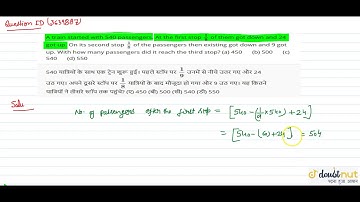 Question ID (3639882)
A train started with 540 passengers. At the first stop of them got down and 24
got up. On its second stop of the passengers then existing got down and 9 got
up. With how many passengers did it reach the third stop? (a) 450 (b) 500 (c)
540 (d) 550
540 यात्रियों के साथ एक ट्रेन शुरू हुई। पहले स्टॉप पर उनमें से नीचे उतर गए और 24
उठ गए। अपने दूसरे स्टॉप पर यात्रियों के बाद मौजूदा हो गया और 9 उठ गया। यह कितने
यात्रियों ने तीसरे स्टॉप तक पहुंचे? (ए) 450 (बी) 500 (सी) 540 (डी) 550
Soln
No. of passengers after the first stop = [540 - (1/9 × 540) + 24]
= [540 - (60) + 24] = 504
doubtnut